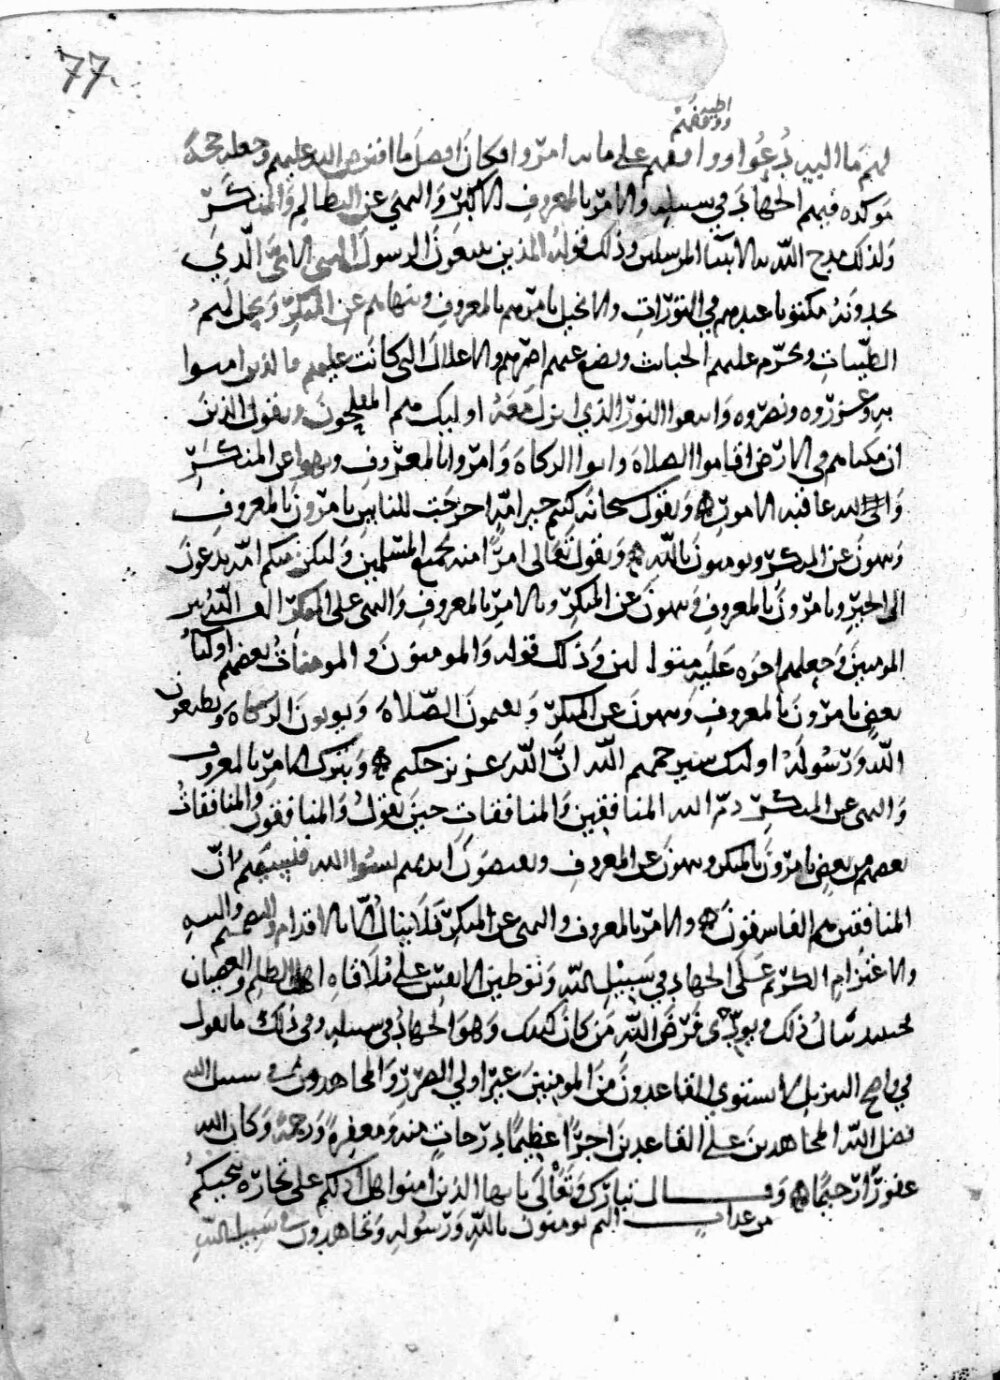 77
لهم ما اليه دعوا ووافقهم على ما به امروا فكان افضل ما افترض الله عليهم وجعله حجة
مؤكدة فيهم الجهاد في سبيله والامر بالمعروف الاكبر والنهي عن التظالم والمنكر
ولذلك مدح الله به الانبيا المرسلين وذلك قوله الذين يتبعون الرسول النبي الامي الذي
يجدونه مكتوبا عندهم في التورات والانجيل يامرهم بالمعروف وينهاهم عن المنكر ويحل لهم
الطيبات ويحرم عليهم الخبائث ويضع عنهم اصرهم والاغلال التي كانت عليهم فالذين امنوا
به وعزروه ونصروه واتبعوا النور الذي انزل معه اوليك هم المفلحون ويقول الذين
ان مكناهم في الارض اقاموا الصلاة واتوا الزكاة وامروا بالمعروف ونهوا عن المنكر
والى الله عاقبة الامور ويقول سبحانه كنتم خير امة اخرجت للناس يامرون بالمعروف
وينهون عن المنكر ويومنون بالله ويقول تعالى امرا منه لجميع المسلمين ولتكن منكم امة يدعون
الى الخير ويامرون بالمعروف وينهون عن المنكر وبالامر بالمعروف والنهي على المنكر الف الله بين
المومنين وجعلهم اخوة عليه متوالين وذلك قوله والمومنون والمومنات بعضهم اوليا
بعض يامرون بالمعروف وينهون عن المنكر ويقيمون الصلاة ويوتون الزكاة ويطيعون
الله ورسوله اوليك سيرحمهم الله ان الله عزيز حكيم وبترك الامر بالمعروف
والنهي عن المنكر ذم الله المنافقين والمنافقات حين يقول والمنافقون والمنافقات
بعضهم من بعض يامرون بالمنكر وينهون عن المعروف ويقبضون ايديهم نسوا الله فنسيهم ان
المنافقين هم الفاسقون والامر بالمعروف والنهي عن المنكر فلا ينال الا بالاقدام والتصميم والنية
والاعتزام الكريم على الجهاد في سبيل الله وتوطين الانفس على ملاقاة اهل الظلم والعصيان
فحينيذ ينال ذلك ويودي فرض الله من كان كذلك وهو الجهاد في سبيله وفي ذلك ما يقول
في واضح التنزيل لا يستوي القاعدون من المومنين غير اولي الضرر والمجاهدون في سبيل الله
فضل الله المجاهدين على القاعدين اجرا عظيما درجات منه ومغفرة ورحمة وكان الله
غفورا رحيما وقال تبارك وتعالى يا يها الذين امنوا هل ادلكم على تجارة تنجيكم
من عذاب اليم تومنون بالله ورسوله وتجاهدون في سبيل الله